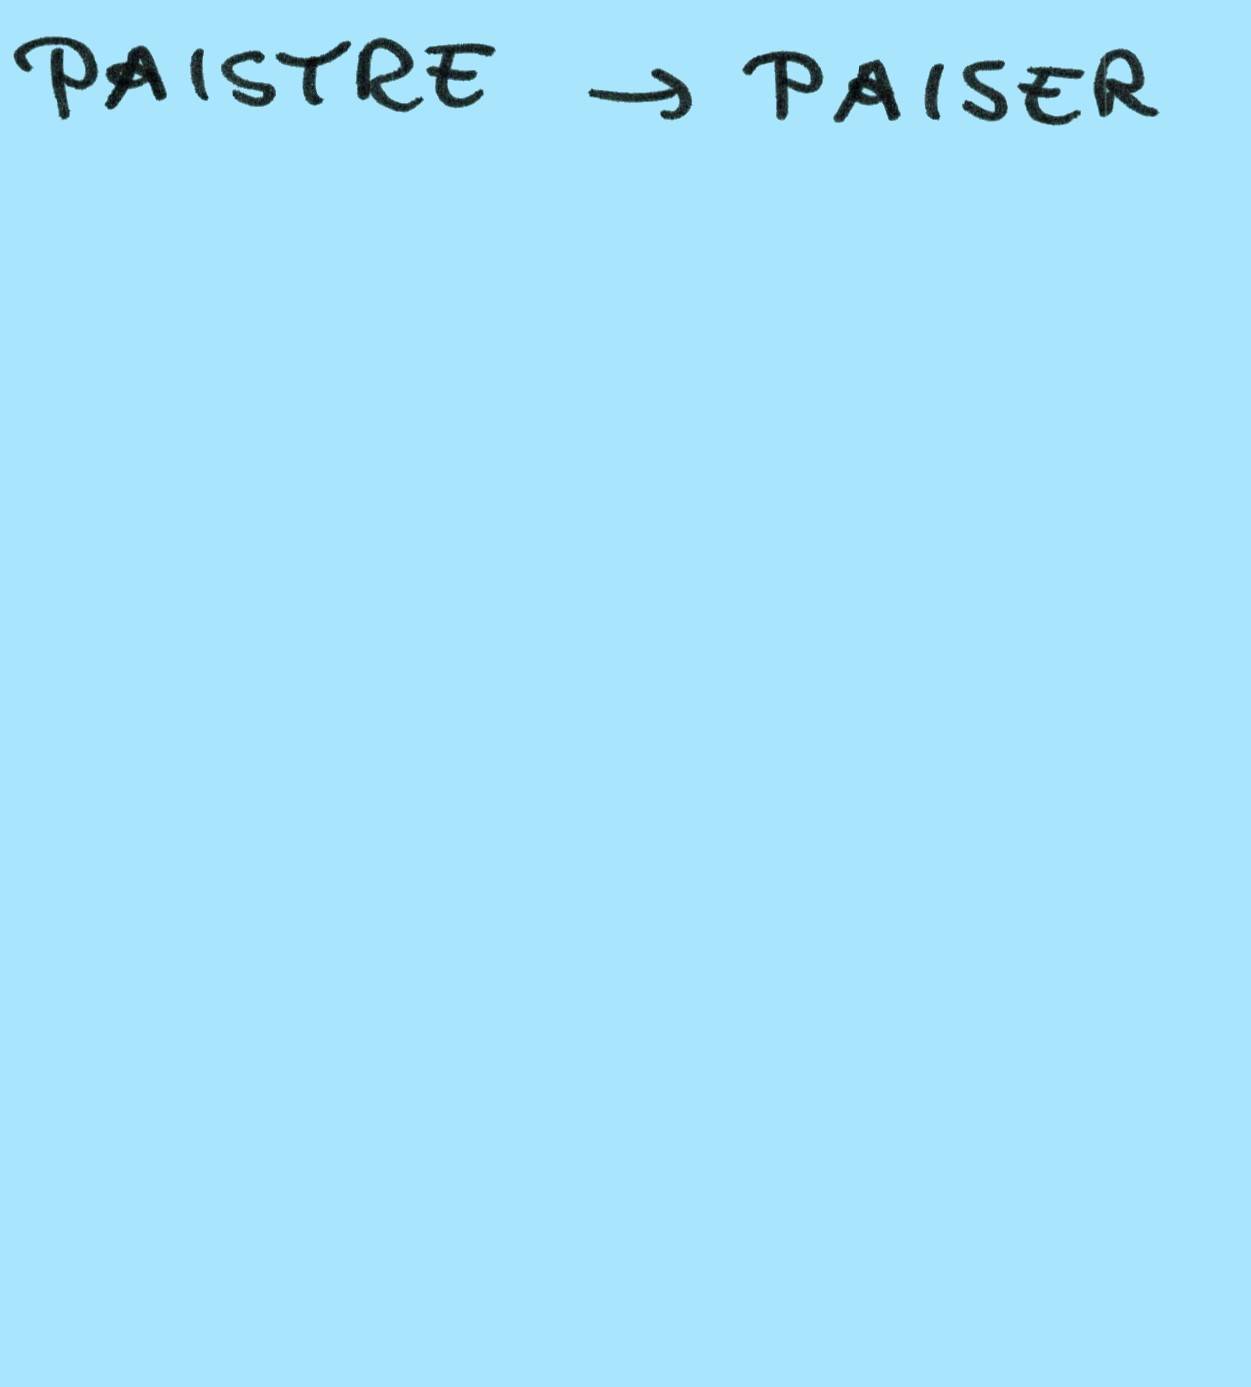 PAISTRE → PAISER